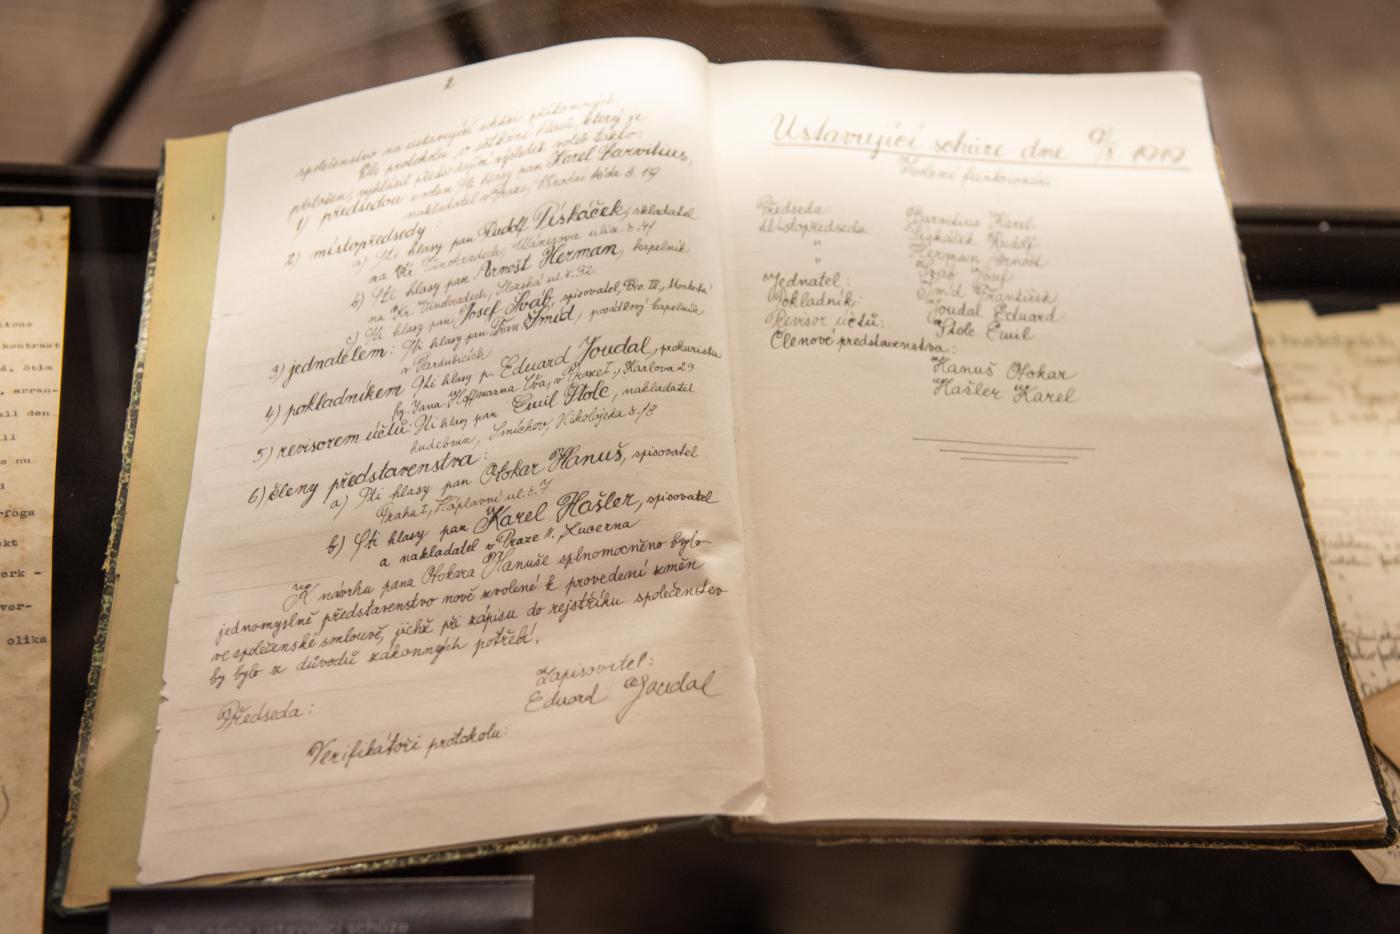 2
společenstvo na ustavující schůzi přítomných.
Dle protokolu o sčítání hlasů, který je
přiložen, vyhlásil předsedající výsledek voleb takto:
1) předsedou zvolen 9ti hlasy pan Karel Barvitius,
nakladatel v Praze, Vodní třída č. 19
2) místopředsedy:
a) 9ti hlasy pan Rudolf Piskáček, skladatel
na Kr. Vinohradech, ulice č. 41
b) 9ti hlasy pan Arnošt Herman, kapelník
na Kr. Vinohradech, Slezská ul. č. 32
c) 9ti hlasy pan Josef Šváb, spisovatel, Bro. III,
3) jednatelem: 9ti hlasy pan Fran Šmíd, posádkový kapelník
v Pardubicích
4) pokladníkem 9ti hlasy p. Eduard Joudal, prokurista
fy. Jana Hoffmanna Vva, v Praze I, Karlova 29
5) revisorem účtů: 9ti hlasy pan Emil Štolc, nakladatel
hudebnin, Smíchov,
6) členy představenstva:
a) 9ti hlasy pan Otokar Hanuš, spisovatel
Praha I, Náplavní ul. č. 7
b) 9ti hlasy pan Karel Hašler, spisovatel
a nakladatel v Praze II. Lucerna
K návrhu pana Otokara Hanuše splnomocněno bylo
jednomyslně představenstvo nově zvolené k provedení změn
ve společenské smlouvě, jichž při zápisu do rejstříku společenstev
by bylo z důvodů zákonných potřebí.
Zapisovatel:
Eduard Joudal
Předseda:
Verifikátoři protokolu:
Ustavující schůze dne 9/X 1919
Zvolení funkcionáři:
Předseda: Barvitius Karel
Místopředseda: Piskáček Rudolf
" Herman Arnošt
" Šváb Josef
Jednatel: Šmíd František
Pokladník: Joudal Eduard
Revisor účtů: Štolc Emil
Členové představenstva:
Hanuš Otokar
Hašler Karel
kontrakt
Stim
arran-
all den
nu
erk -
ver-
olika
ustavující schůze